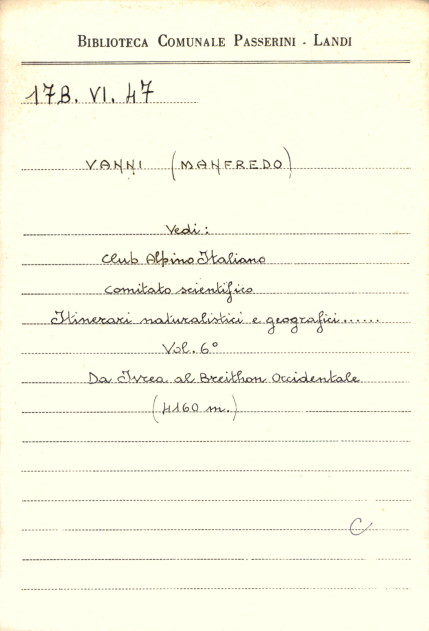 BIBLIOTECA COMUNALE PASSERINI - LANDI
17B. VI. 47
VANNI (MANFREDO)
Vedi:
Club Alpino Italiano
Comitato scientifico
Itinerari naturalistici e geografici......
Vol. 6°
Da Ivrea al Breithon Occidentale
(4160 m.)
C